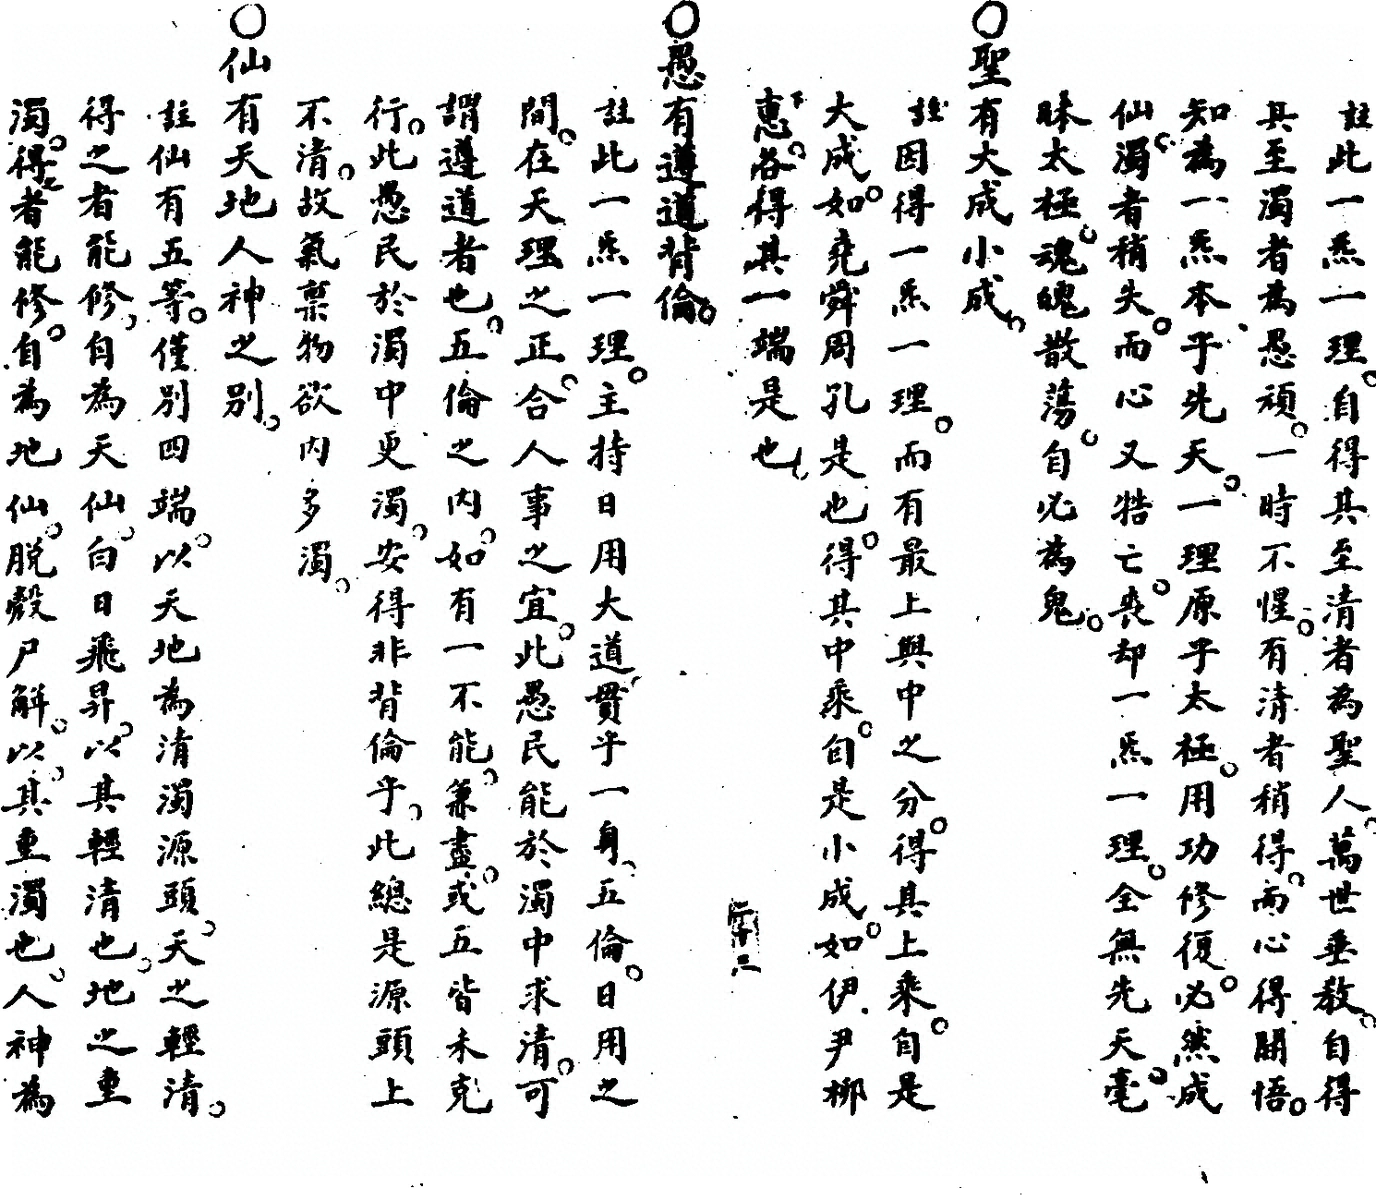 註此一炁一理。自得其至清者為聖人。萬世垂教。自得
其至濁者為愚頑。一時不惺。有清者稍得。而心得開悟。
知為一炁本乎先天。一理原乎太極。用功修復。必然成
仙。濁者稍失。而心又牿亡。喪却一炁一理。全無先天。毫
昧太極。魂魄散蕩。自必為鬼。
○聖有大成小成。
註因得一炁一理。而有最上與中之分。得其上乘。自是
大成。如堯舜周孔是也。得其中乘。自是小成。如伊尹柳
下惠。各得其一端是也。
二十二
○愚有遵道背倫。
註此一炁一理。主持日用大道。貫乎一身。五倫。日用之
間。在天理之正。合人事之宜。此愚民能於濁中求清。可
謂遵道者也。五倫之內。如有一不能。兼盡。或五皆未克
行。此愚民於濁中更濁。安得非背倫乎。此總是源頭上
不清。故氣禀物欲內多濁。
○仙有天地人神之別。
註仙有五等。僅別四端。以天地為清濁源頭。天之輕清。
得之者能修。自為天仙。白日飛昇。以其輕清也。地之重
濁。得之者能修。自為地仙。脫殼尸解。以其重濁也。人神為